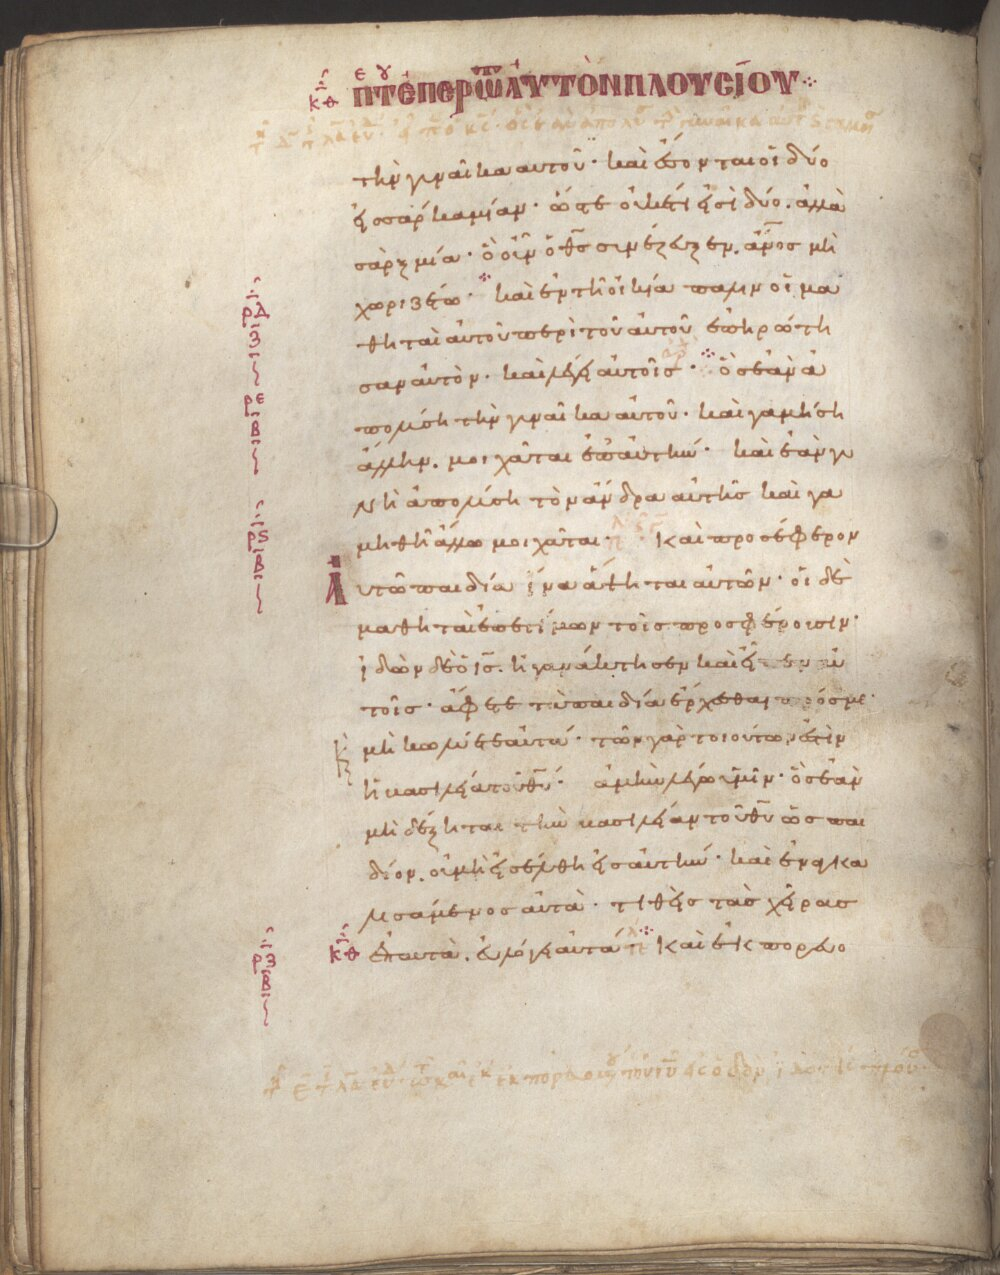 κθ περὶ τοῦ ἐπερωτ αὐτὸν πλουσίου
τὴν γυναῖκα αὐτοῦ· καὶ ἔσονται οἱ δύο
εἰς σάρκα μίαν· ὥστε οὐκέτι εἰσὶ δύο. ἀλλὰ
σὰρξ μία· ὃ οὖν ὁ θς συνέζευξεν. ἄνος μὴ
χωριζέτω· καὶ ἐν τῆ οἰκία πάλιν οἱ μα
θηταὶ αὐτοῦ περὶ τοῦ αὐτοῦ ἐπηρώτη
σαν αὐτὸν· καὶ λέγει αὐτοῖς· ὃς ἐὰν ἀ
πολύση τὴν γυναῖκα αὐτοῦ· καὶ γαμήση
ἄλλην. μοιχᾶται ἐπ' αὐτήν· καὶ ἐὰν γυ
νὴ ἀπολύση τὸν ἄνδρα αὐτῆς καὶ γα
μηθῆ ἄλλω μοιχᾶται· Καὶ προσέφερον
Αυτῶ παιδία ἵνα ἅψηται αὐτῶν· οἱ δὲ
μαθηταὶ ἐπετίμων τοῖς προσφέρουσιν·
ἰδὼν δὲ ὁ ις. ἠγανάκτησεν καὶ εἶπεν αὐ
τοῖς· ἄφετε τὰ παιδία ἔρχεσθαι πρός με·
μὴ κωλύετε αὐτά· τῶν γὰρ τοιούτων ἐστὶν
ἡ βασιλεία τοῦ θυ· ἀμὴν λέγω ὑμῖν· ὃς ἐὰν
μὴ δέξηται τὴν βασιλείαν τοῦ θυ ὡς παι
δίον. οὐ μὴ εἰσέλθη εἰς αὐτήν· καὶ ἐναγκα
λισάμενος αὐτὰ· τιθεὶς τὰς χεῖρας
ἐπ' αυτὰ. εὐλόγει αὐτά· Καὶ ἐκπορευο
ρδ
ζ
ρε
β
ρς
β
ρζ
β
κθ